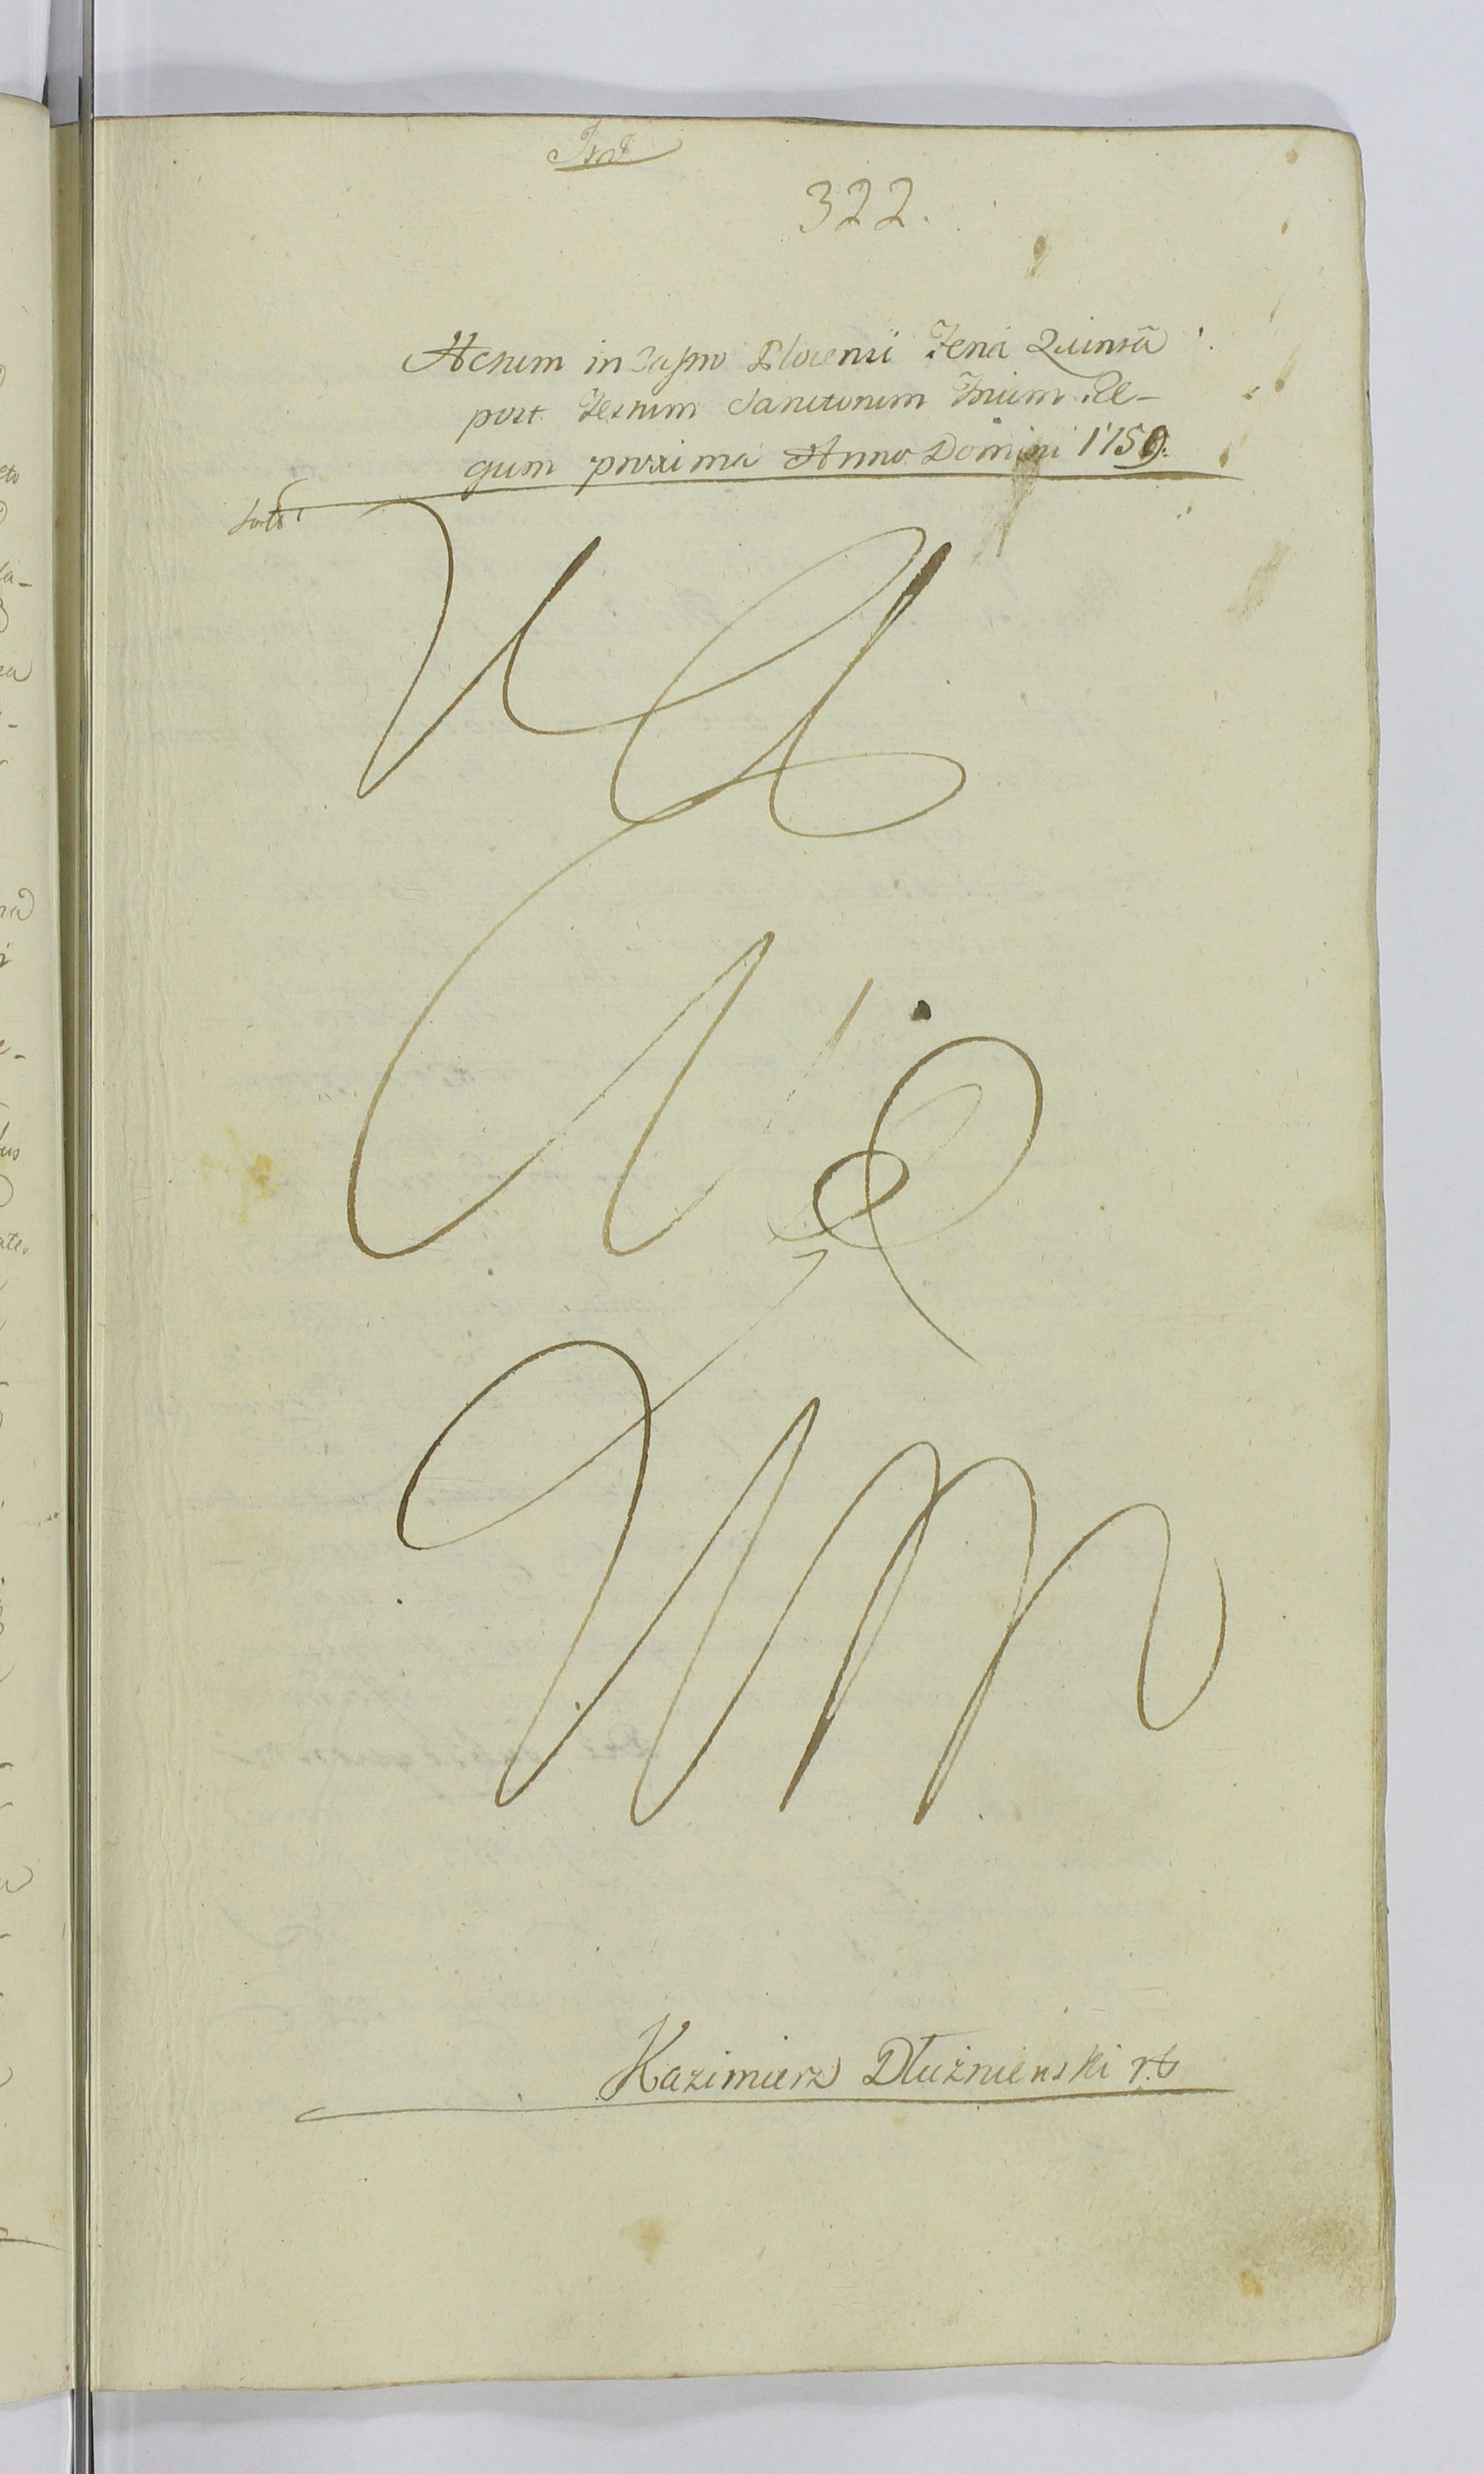 322.
Actum in Castro Plocensi Feria Quinta
post Festum Sanctorum Trium Re-
gum proxima Anno Domini 1759.
Va
cu
um
Kazimierz Dłużniewski